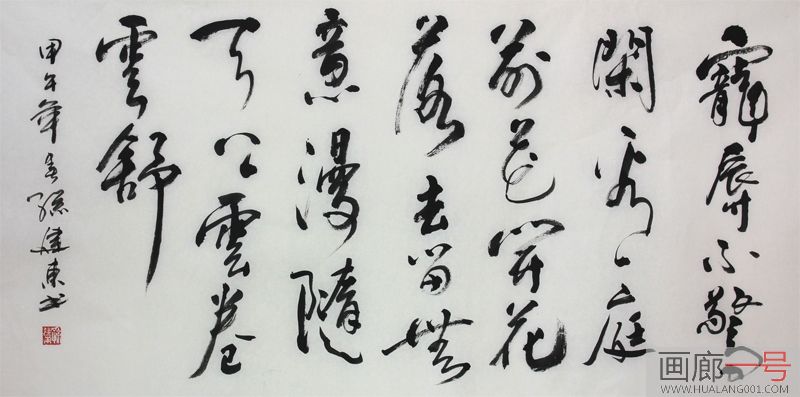 寵辱不驚
閑看庭
前花開花
落去留無
意漫隨
天外雲卷
雲舒
甲午年春孫建東书
画廊一号
WWW.HUALANG001.COM